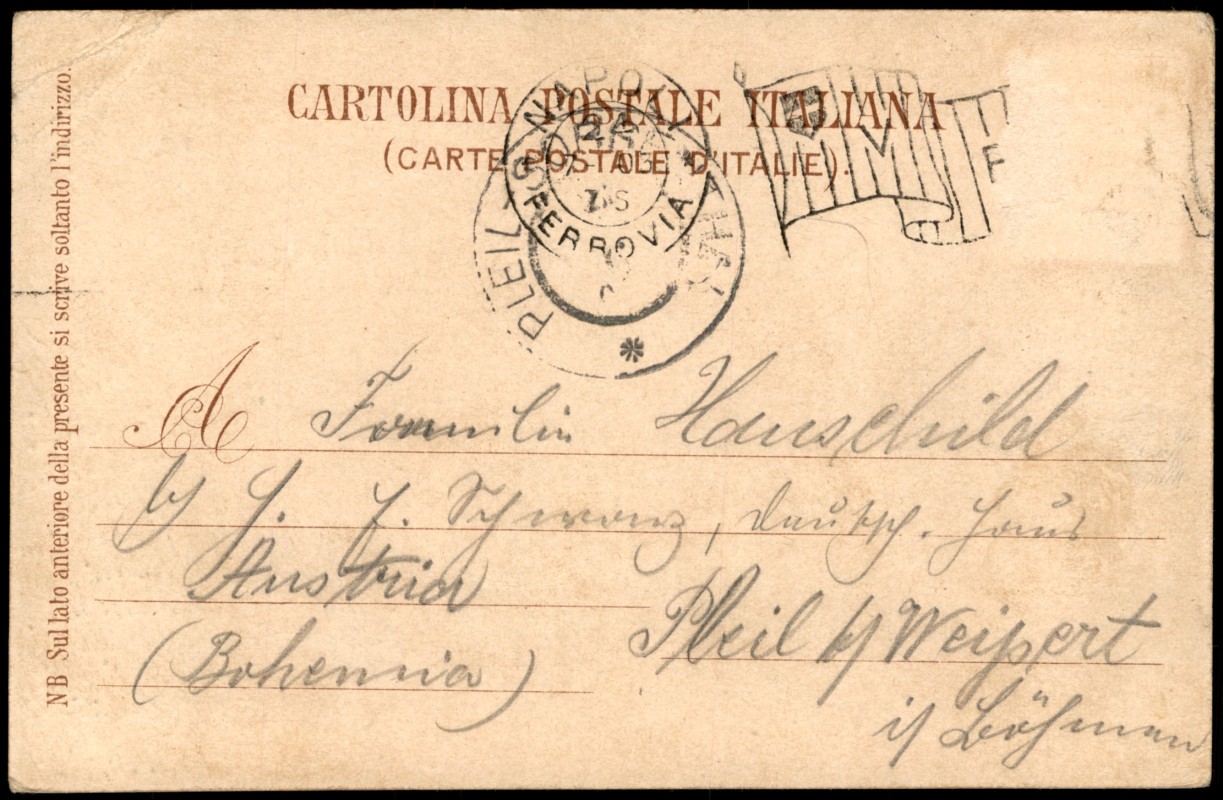 CARTOLINA POSTALE ITALIANA
(CARTE POSTALE D'ITALIE).
NAPOLI
FERROVIA
PLEIL
NB Sul lato anteriore della presente si scrive soltanto l'indirizzo.
A Hauschild
b/ H. J. Schwarz, deutsch. Haus
Austria
Pleil b/ Weipert
(Bohemia)
i/ Böhmen